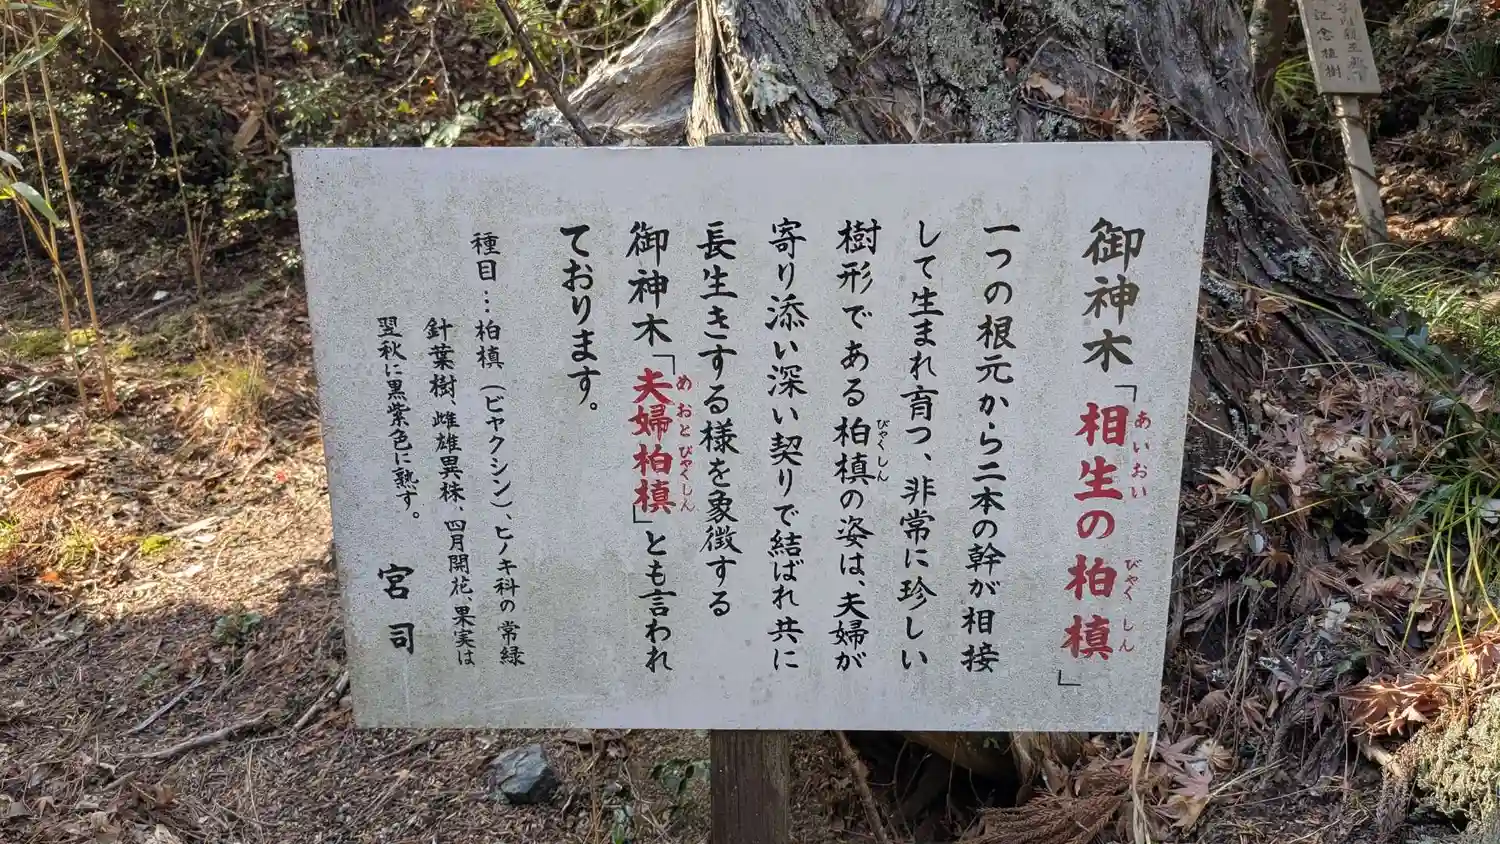 御神木「相生の柏槙」
あいおい びゃくしん
一つの根元から二本の幹が相接
して生まれ育つ、非常に珍しい
樹形である柏槙の姿は、夫婦が
びゃくしん
寄り添い深い契りで結ばれ共に
長生きする様を象徴する
御神木「夫婦柏槙」とも言われ
めおとびゃくしん
ております。
種目…柏槙(ビャクシン)、ヒノキ科の常緑
針葉樹、雌雄異株、四月開花、果実は
翌秋に黒紫色に熟す。
宮司
記念植樹